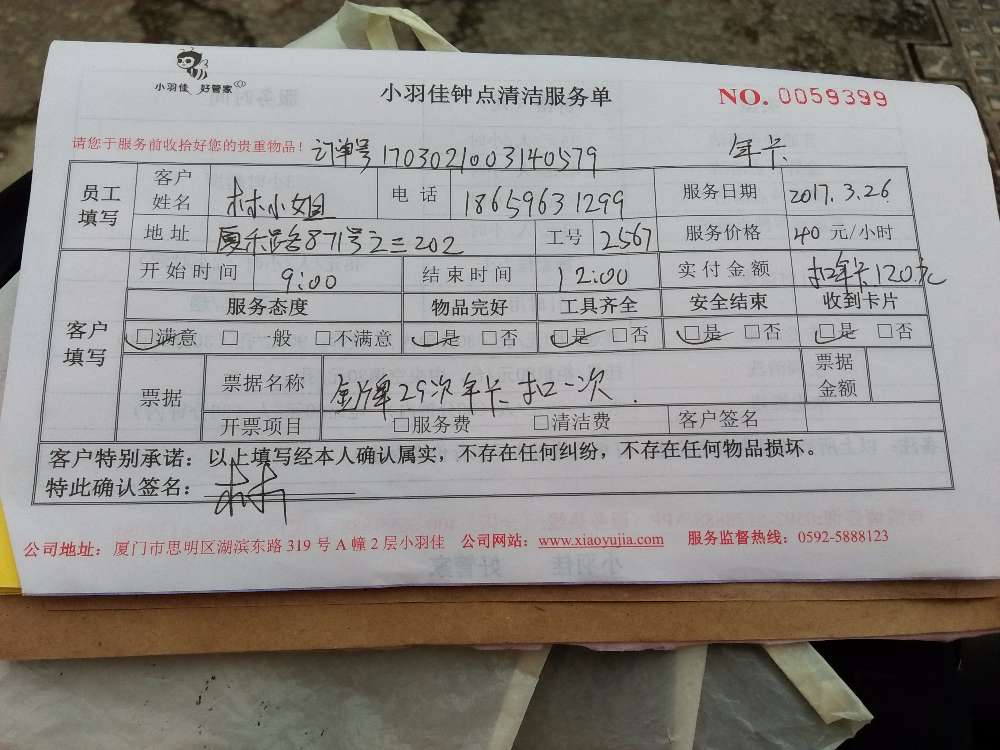 小羽佳 好管家
小羽佳钟点清洁服务单
NO. 0059399
请您于服务前收拾好您的贵重物品! 订单号 1703021003140579 年卡
员工填写 客户姓名 林小姐 电话 18659631299 服务日期 2017.3.26
地址 厦禾路871号之二202 工号 2567 服务价格 40 元/小时
客户填写 开始时间 9:00 结束时间 12:00 实付金额 扣年卡120元
服务态度 物品完好 工具齐全 安全结束 收到卡片
☑满意 □一般 □不满意 ☑是 □否 ☑是 □否 ☑是 □否 ☑是 □否
票据 票据名称 金牌29次年卡扣一次. 票据金额
开票项目 □服务费 □清洁费 客户签名
客户特别承诺：以上填写经本人确认属实，不存在任何纠纷，不存在任何物品损坏。
特此确认签名： 林
公司地址：厦门市思明区湖滨东路 319 号 A 幢 2 层小羽佳 公司网站：www.xiaoyujia.com 服务监督热线：0592-5888123